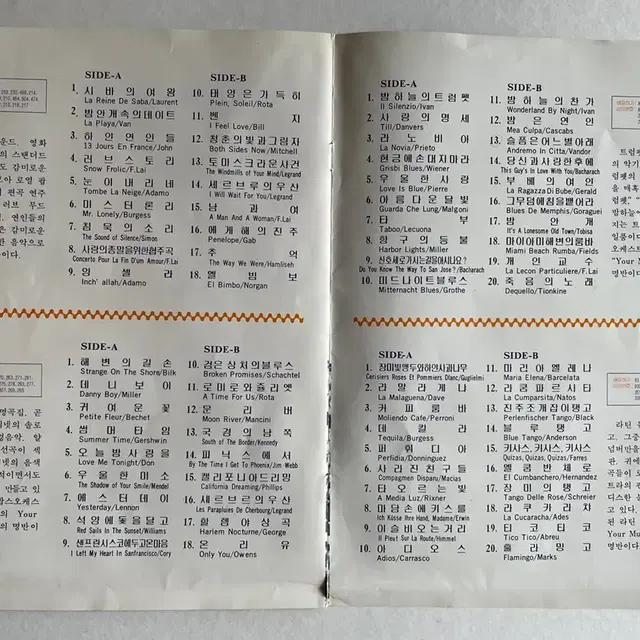 SIDE-A
1. 시바의여왕
La Reine De Saba/Laurent
2. 밤안개속의데이트
La Playa/Van
3. 하얀연인들
13 Jours En France/John
4. 러브스토리
Snow Frolic/F.Lai
5. 눈이내리네
Tombe La Neige/Adamo
6. 미스터론리
Mr. Lonely/Burgess
7. 침묵의소리
The Sound of Silence/Simon
8. 사랑의종말을위한협주곡
Concerto Pour La Fin D'um Amour/F.Lai
9. 잉샬라
Inch' allah/Adamo
SIDE-B
10. 태양은가득히
Plein, Soleil/Rota
11. 벤지
I Feel Love/Bill
12. 청춘의빛과그림자
Both Sides Now/Mitchell
13. 토마스크라운사건
The Windmills of Your Mind/Legrand
14. 세르브루의우산
I Will Wait For You/Legrand
15. 남과여
A Man And A Woman/F.Lai
16. 에게해의진주
Penelope/Gab
17. 추억
The Way We Were/Hamliseh
18. 엘빔보
El Bimbo/Norgan
SIDE-A
1. 밤하늘의트럼펫
Il Silenzio/Ivan
2. 사랑의명세
Till/Danvers
3. 라노비아
La Novia/Prieto
4. 현금에손대지마라
Grisbi Blues/Wiener
5. 우울한사랑
Love Is Blue/Pierre
6. 아름다운달빛
Guarda Che Lung/Malgoni
7. 타부
Taboo/Lecuona
8. 항구의등불
Harbor Lights/Miller
9. 산호세로가시는길을아시나요?
Do You Know The Way To San Jose?/Bacharach
10. 미드나이트블루스
Mitternacht Blues/Grothe
SIDE-B
11. 밤하늘의찬가
Wonderland By Night/Ivan
12. 밤은연인
Mea Culpa/Cascabs
13. 슬픔은어느별아래
Andremo In Citta/Vandor
14. 당신과사랑한후에
This Guy's In Love With You/Bacharach
15. 부베의여인
La Ragazza Di Bube/Gerald
16. 그무덤에침을뱉어라
Blues De Memphis/Goraguei
17. 밤안개
It's A Lonesome Old Town/Tobis
18. 마이아미해변의룸바
Miami Beach Rumba/Fields
19. 개인교수
La Lecon Particuliere/F.Lai
20. 죽음의노래
Dequello/Tionkine
SIDE-A
1. 해변의길손
Strange On The Shore/Bilk
2. 데니보이
Danny Boy/Miller
3. 귀여운꽃
Petite Fleur/Bechet
4. 썸머타임
Summer Time/Gershwin
5. 오늘밤사랑을
Love Me Tonight/Don
6. 우울한미소
The Shadow of Your Smile/Mendel
7. 예스터데이
Yesterday/Lennon
8. 석양에돛을달고
Red Sails In The Sunset/Williams
9. 샌프란시스코에두고온마음
I Left My Heart In Sanfrancisco/Cory
SIDE-B
10. 검은상처의블루스
Broken Promises/Schachtel
11. 로미오와쥴리엣
A Time For Us/Rota
12. 문리버
Moon River/Mancini
13. 국경의남쪽
South of The Border/Kennedy
14. 피닉스에서
By The Time I Get To Phoenix/Jim·Webb
15. 캘리포니아드리밍
California Dreaming/Phillips
16. 세르브르의우산
Les Parapluies De Chercbourg/Legrand
17. 할렘야상곡
Harlem Nocturne/George
18. 온리유
Only You/Owens
SIDE-A
1. 장미빛앵두와하얀사과나무
Cerisiers Roses Et Pommiers D'lanc/Guglielmi
2. 라말라게나
La Malaguena/Dave
3. 커피룸바
Moliendo Cafe/Perroni
4. 데킬라
Tequila/Burgess
5. 퍼휘아
Perfidia/Donninguez
6. 사라진친구들
Compagmen Disparu/Macias
7. 타오르는빛
A Media Luz/Rixner
8. 마담손에키스를
Ich Kösse Ihre Hand, Madame/Erwin
9. 이슬비오는거리
Il Pleut Sur La Route/Himmel
10. 아디오스
Adios/Carrasco
SIDE-B
11. 마리아엘레나
Maria Elena/Barcelata
12. 라쿰파르시타
La Cumparsita/Natos
13. 진주조개잡이탱고
Perlenfischer Tango/Black
14. 블루탱고
Blue Tango/Anderson
15. 키사스, 키사스, 키사스
Quizas, Quizas, Quizas/Farres
16. 엘쿰반체로
El Cumbanchero/Hernandez
17. 장미의탱고
Tango Delle Rose/Schreier
18. 라쿠카라차
La Cucaracha/Ades
19. 티코티코
Tico Tico/Abreu
20. 홀라밍고
Flamingo/Marks